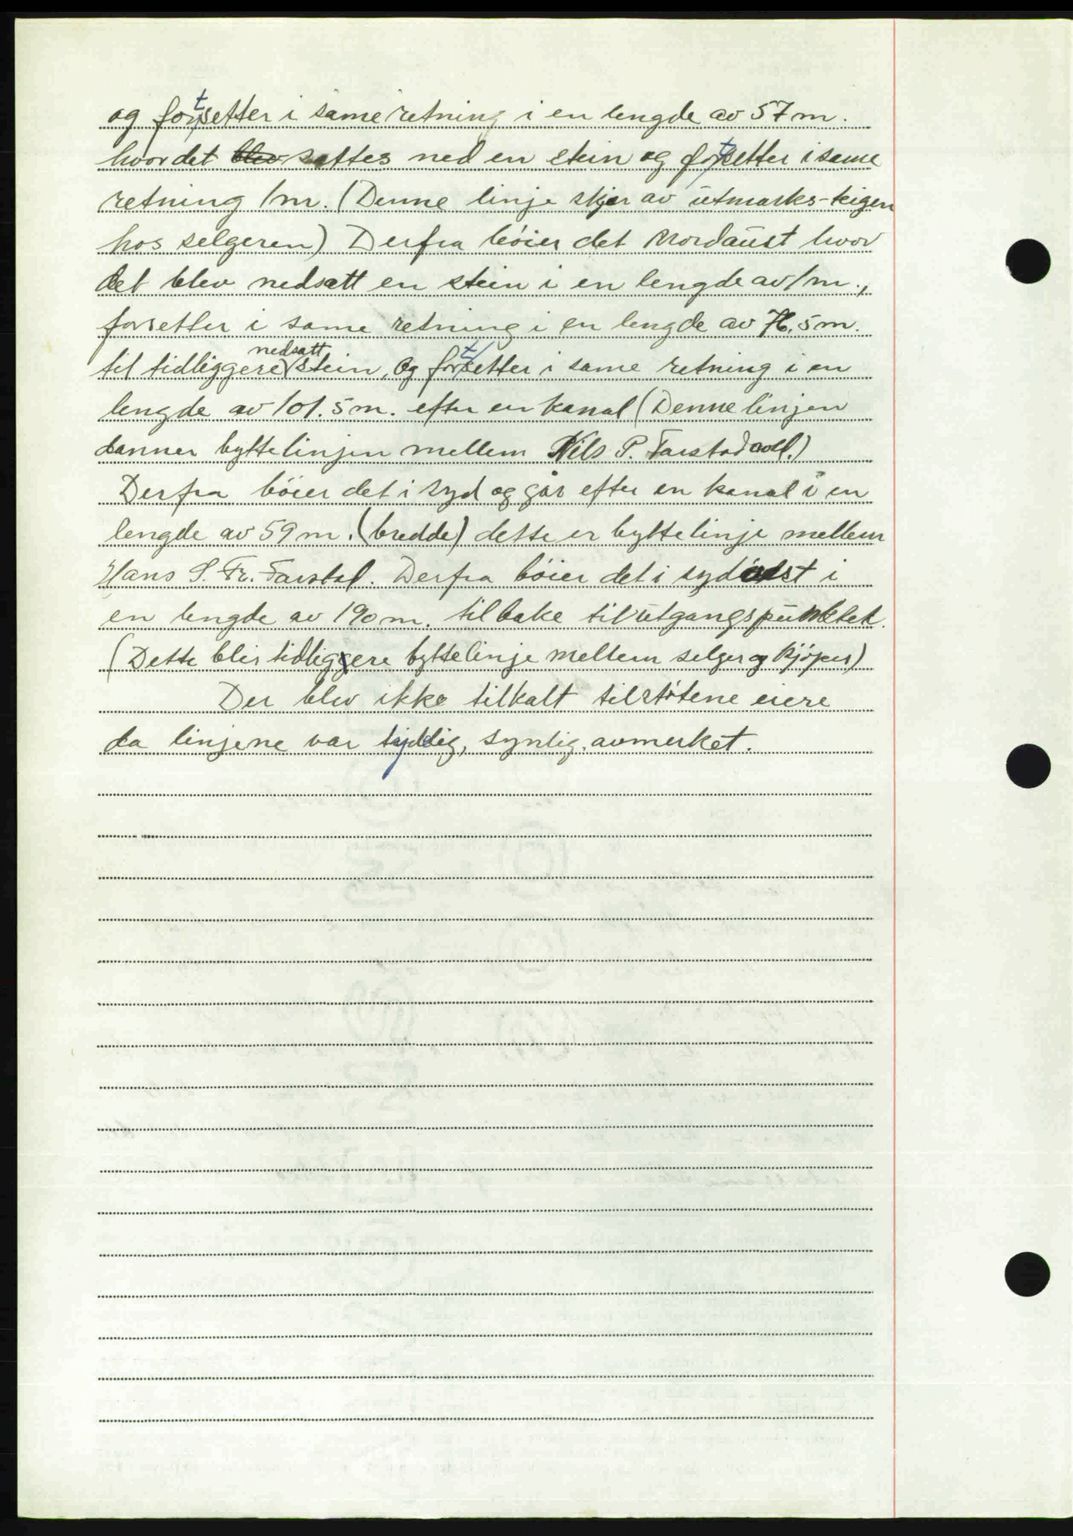 og fortsetter i same retning i en lengde av 57 m.
hvor det blev settes ned en stein og fortsetter i same
retning 1 m. (Denne linje skjer av utmarks-teigen
hos selgeren) Derfra bøier det Nordaust hvor
det blev nedsatt en stein i en lengde av 1 m.,
forsetter i same retning i en lengde av 76.5 m.
til tidliggere nedsatt stein, og fortsetter i same retning i en
lengde av 101.5 m. efter en kanal (Denne linjen
danner byttelinjen mellem Nils P. Farstadvoll.)
Derfra bøier det i syd og går efter en kanal i en
lengde av 59 m. (bredde) dette er byttelinje mellem
Hans S. Fr. Farstad. Derfra bøier det i sydøst i
en lengde av 190 m. tilbake til utgangspunktet.
(Dette blir tidligere byttelinje mellem selger og kjøper)
Der blev ikke tilkalt tilstøtene eiere
da linjene var tydelig, synlig avmerket.